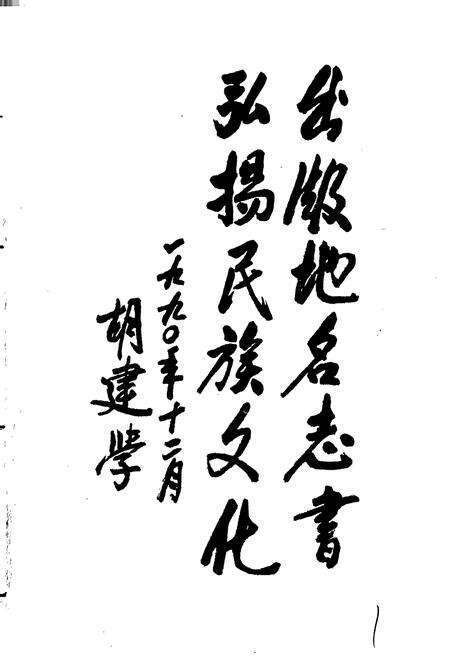 出版地名志書
弘揚民族文化
一九九〇年十二月
胡建學